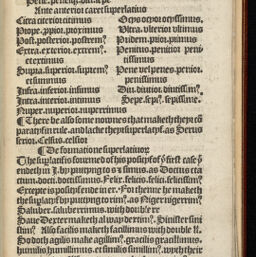 Ante anterior caret superlatiuo
Citra citerior citimus Ocyus ocyor ocyssimus.
Prope. ppior. proximus Vltra. vlterior vltimus
Post. posterior. postrem? Pridem. prior. primus
Extra. exterior. extrem?. Penitus. penitior peni
et extimus tissimus
Supra. superior. suprem? Pene vel penes. penior.
et summus penissimus
Infra. inferior. infimus Diu. diutior. diutissim?.
Intra. interior. intimus Sepe. sepi?. sepissime.
Nuper. nuperior. nuperrimus
¶ There be also some nownes that maketh they cō
paratyf in rule. and lacke they superlatyf. as
serior. Celsius. celsior
¶ De formatione superlatiuorū
The suplatif is fourmed of his posityf
endeth in I. by puttyng to s & simus. as Doctus
cti. docti. doctissimus. Felix. felicis. felici. felissim?
Excepte is posityf ende in er. For thenne he maketh
the suplatyf by puttyng to rim?. as Niger nigerrim?
Saluber. saluberrimus. with double r
Saue Dexter maketh alway dextim?. Sinister sini
stim?. Also facilis maketh facillimus with double ll.
So doth agilis make agillim?. gracilis gracillimus.
humilis humillimus. et similis simillim?. wyth their